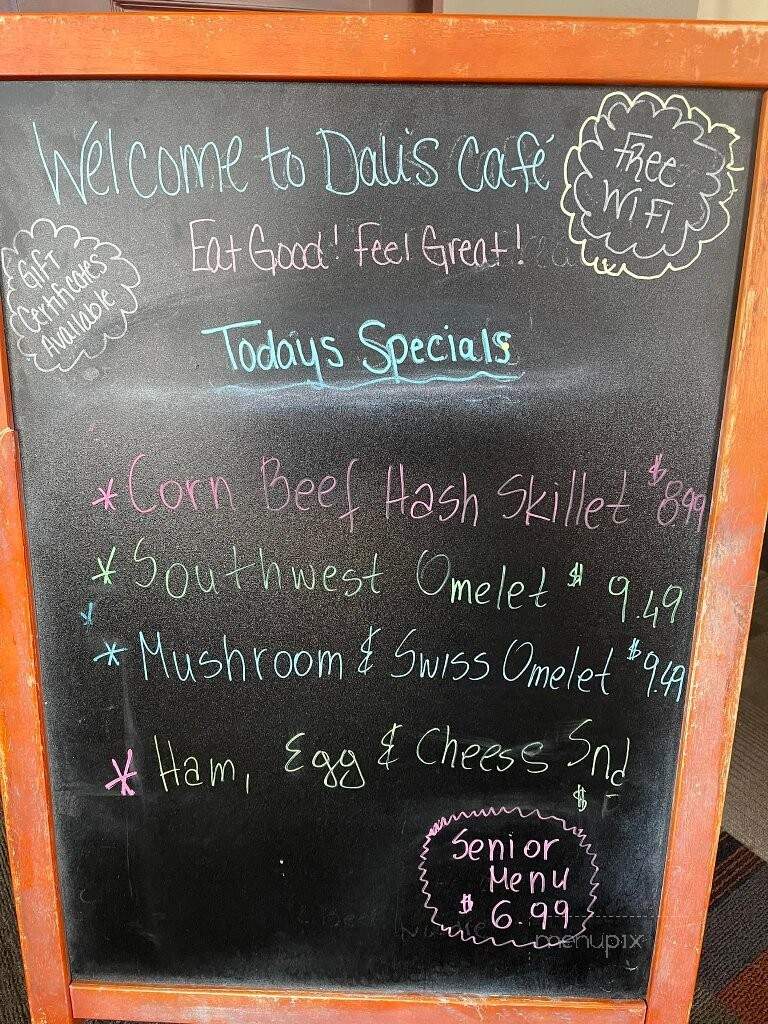 Welcome to Dali's Café
Free
WiFi
Eat Good! Feel Great!
Gift
Certificates
Available
Todays Specials
* Corn Beef Hash Skillet $8.99
* Southwest Omelet $ 9.49
* Mushroom & Swiss Omelet $9.49
* Ham, Egg & Cheess Snd
$
Senior
Menu
$ 6.99
menupix